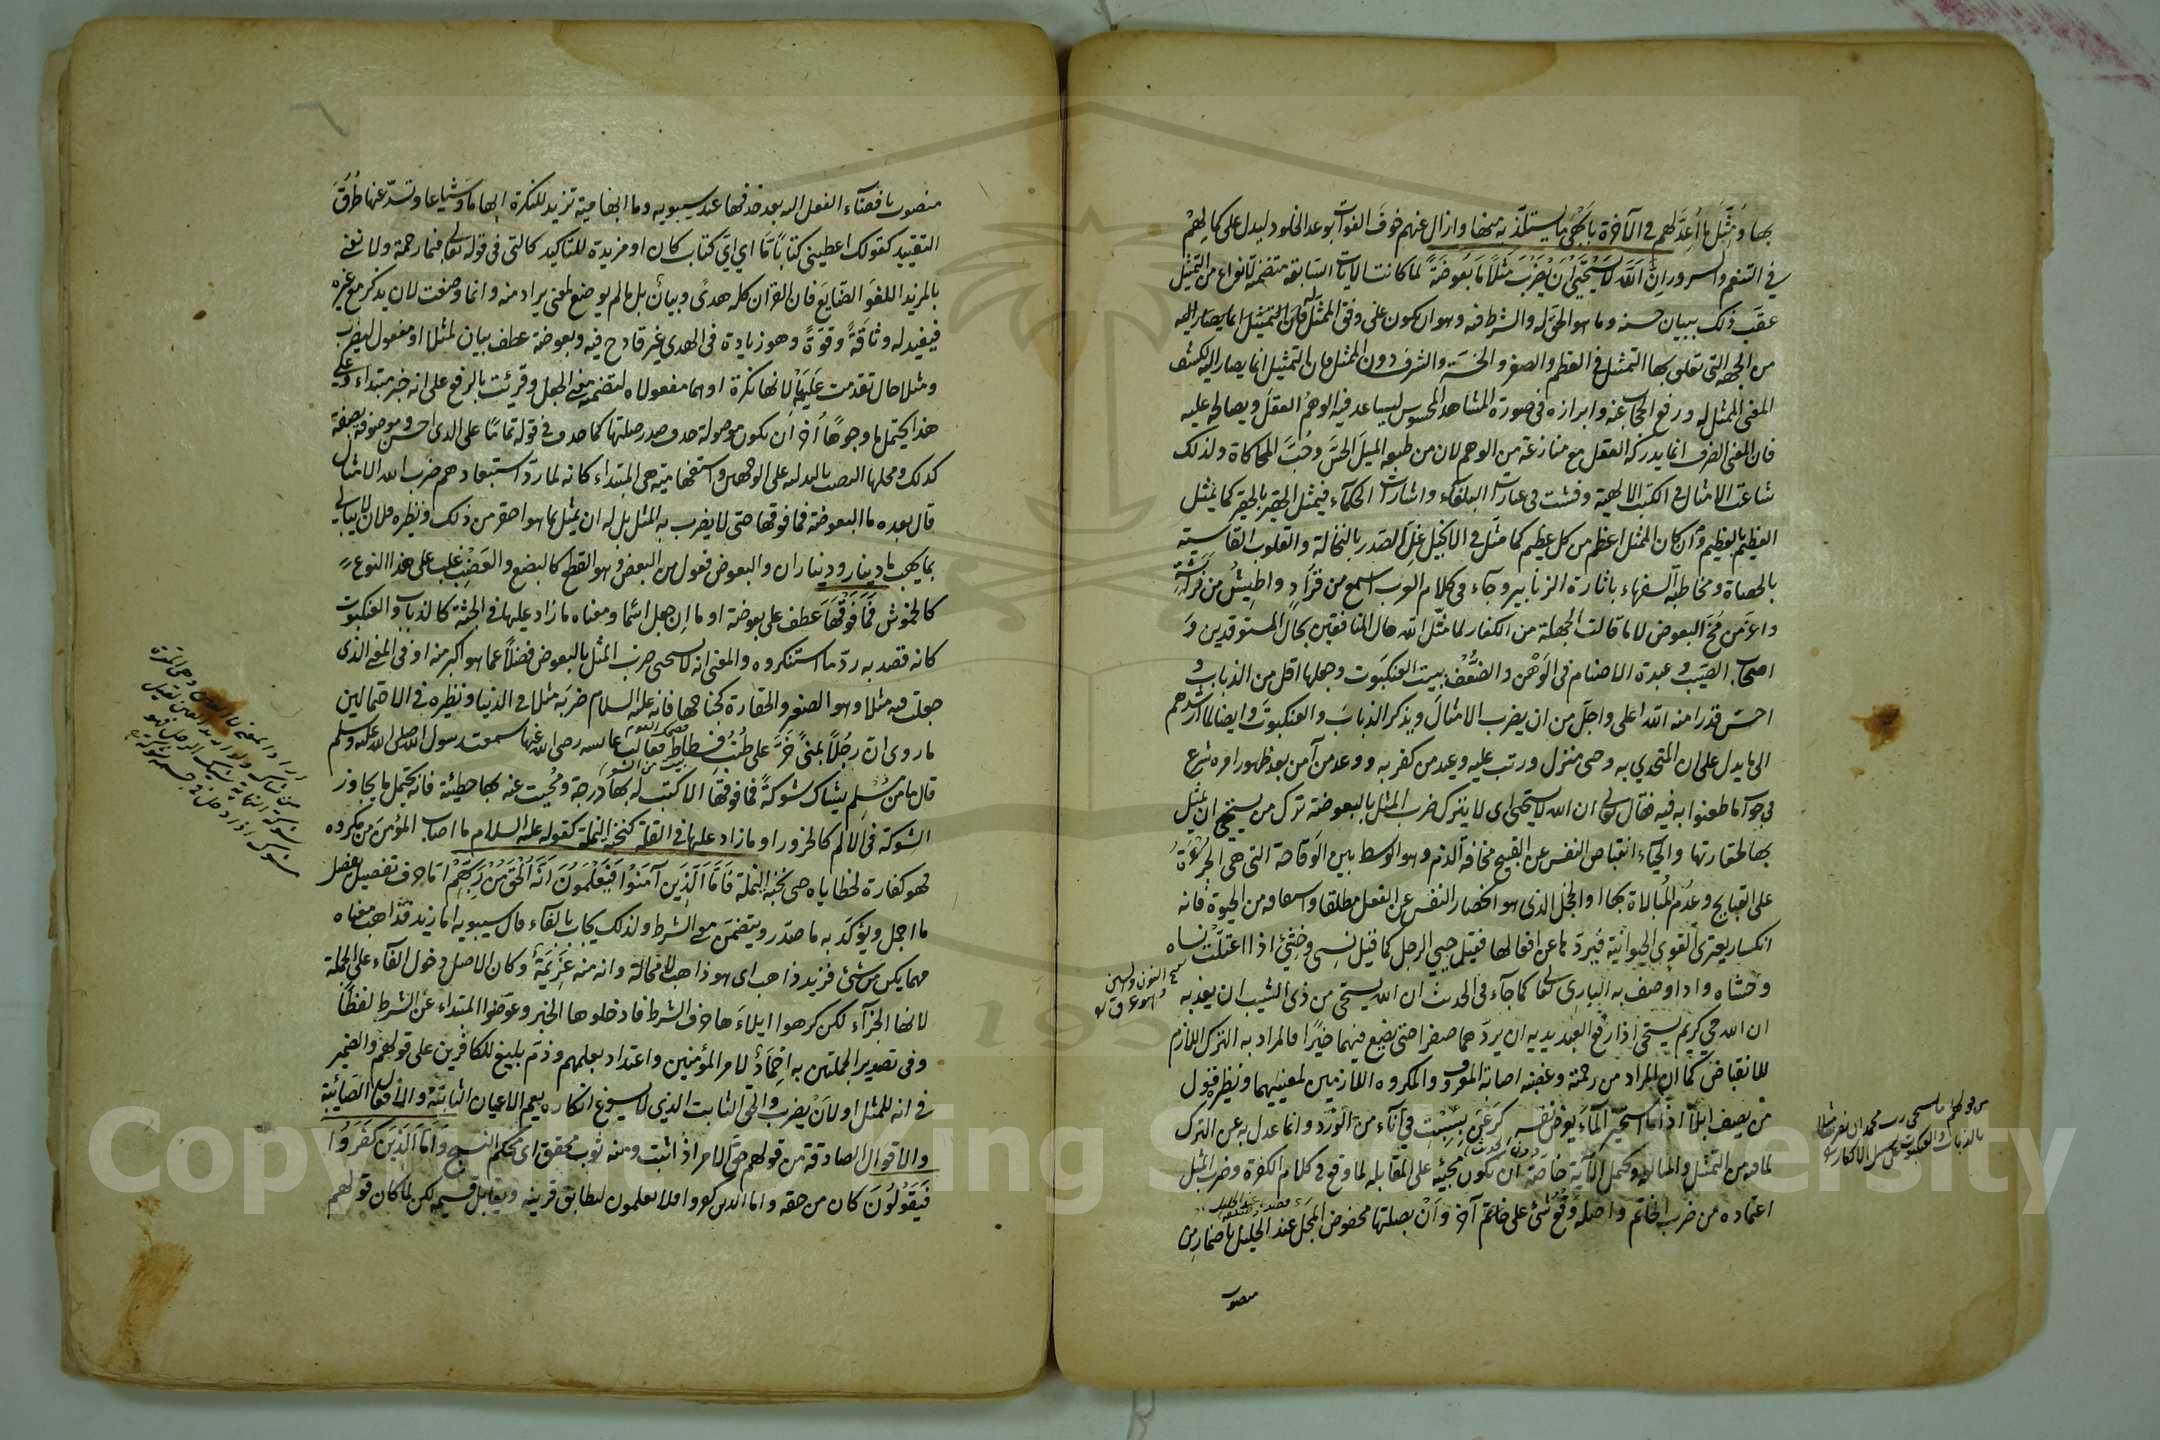 بها ومثل ما أعد لهم في الآخرة بأبهى ما يستلذ به منها وازال عنهم خوف الفوات بوعد الخلود ليدل على كمالهم
في التنعم والسرور إِنَّ اللَّهَ لَا يَسْتَحْيِي أَنْ يَضْرِبَ مَثَلًا مَا بَعُوضَةً لما كانت الايات السابقة متضمنة لانواع من التمثيل
عقب ذلك ببيان حسنه وما هو الحق له والشرط فيه وهو ان يكون على وفق الممثل له فان التمثيل انما يصار اليه
من الجهة التي تعلق بها التمثيل في العظم والصغر والخسة والشرف دون الممثل فان التمثيل انما يصار اليه لكشف
المعنى الممثل له ورفع الحجاب عنه وابرازه في صورة المشاهد المحسوس ليساعد فيه الوهم العقل ويصالحه عليه
فان المعنى الصرف انما يدركه العقل مع منازعة من الوهم لان من طبعه الميل الحس وحب المحاكاة ولذلك
شاعت الامثال في الكتب الالهية وفشت في عبارات البلغاء واشارات الحكماء فيمثل الحقير بالحقير كما يمثل
العظيم بالعظيم وان كان الممثل اعظم من كل عظيم كما مثل في الانجيل غل الصدر بالنخالة والقلوب القاسية
بالحصاة ومخاطبة السفهاء باثارة الزنابير وجاء في كلام العرب اسمع من قراد واطيش من فراشة
واعز من مخ البعوض لا ما قالت الجهلة من الكفار لما مثل الله حال المنافقين بحال المستوقدين و
اصحاب الصيب وعبدة الاصنام في الوهن والضعف ببيت العنكبوت وجعلها اقل من الذباب و
اخس قدرا منه الله اعلى واجل من ان يضرب الامثال ويذكر الذباب والعنكبوت وايضا لما ارشدهم
الى ما يدل على ان المتحدي به وحي منزل ورتب عليه وعيد من كفر به ووعد من آمن بعد ظهور امره شرع
في جواب ما طعنوا به فيه فقال تعالى ان الله لا يستحيي اي لا يترك ضرب المثل بالبعوضة ترك من يستحيي ان يمثل
بها لحقارتها والحياء انقباض النفس عن القبيح مخافة الذم وهو الوسط بين الوقاحة التي هي الجرءة
على القبايح وعدم المبالاة بها والخجل الذي هو انحصار النفس عن الفعل مطلقا واشتقاقه من الحيوة فانه
انكسار يعتري القوي الحيوانية فيردها عن افعالها فقيل حيي الرجل كما قيل نسي وحشي اذا اعتلت نساه
وحشاه واذا وصف به الباري تعالى كما جاء في الحديث ان الله يستحيي من ذي الشيب ان يعذبه
ان الله حي كريم يستحي اذا رفع العبد يديه ان يردهما صفرا حتى يضع فيهما خيرا فالمراد به الترك اللازم
للانقباض كما ان المراد من رحمته وغضبه اصابة المعروف والمكروه اللازمين لمعنييهما ونظيره قول
من يصف ابلا اذا ما استحين الماء يعرض نفسه كرعن بسبت في اناء من الورد وانما عدل به عن الترك
لما فيه من التمثيل والمبالغة ويحتمل الآية خاصة ان يكون مجيئه على المقابلة لما وقع في كلام الكفرة وضرب المثل
اعتماده من ضرب الخاتم واصله وقع شئ على خاتم آخر وأن بصلتها مخفوض المحل عند الخليل باضمار من
منصوب
منصوب بافضاء الفعل اليه بعد حذفها عند سيبويه وما ابهامية تزيد للنكرة ابهاما وشياعا وتسد عنها طرق
التقييد كقولك اعطيني كتابا ما اي اي كتاب كان او مزيدة للتاكيد كالتي في قوله تعالى فبما رحمة ولا نعني
بالمزيد اللغو الضايع فان القران كله هدى وبيان بل ما لم يوضع لمعنى يراد منه وانما وضعت لان يذكر مع غيره
فيفيد له وثاقة وقوة وهو زيادة في الهدى غير قادح فيه وبعوضة عطف بيان لمثلا او مفعول ليضرب
ومثلا حال تقدمت عليها لانها نكرة او هما مفعولاه لتضمنه معنى الجعل وقرئت بالرفع على انه خبر مبتداء وعلى
هذا يحتمل ما وجوها اخر ان يكون موصولة حذف صدر صلتها كما حذف في قوله تماما على الذي احسن وموصوفة بصفة
كذلك ومحلها النصب بالبدلية على الوجهين واستفهامية هي المبتداء كانه لما رد استبعادهم ضرب الله الامثال
قال بعده ما البعوضة فما فوقها حتى لا يضرب به المثل بل له ان يمثل بما هو احقر من ذلك ونظيره فلان لا يبالي
بما يهب ما دينار ودينارن والبعوض فعول من البعض وهو القطع كالبضع والعضب غلب على هذا النوع
كالخموش فَمَا فَوْقَهَا عطف على بعوضة او ما ان جعل اسما ومعناه ما زاد عليها في الجثة كالذباب والعنكبوت
كانه قصد به رد ما استنكروه والمعنى انه لا يستحيي ضرب المثل بالبعوض فضلا عما هو اكبر منه او في المعنى الذي
جعلت فيه مثلا وهو الصغر والحقارة كجناحها فانه عليه السلام ضربه مثلا للدنيا ونظيره في الاحتمالين
ما روى ان رجلا بمنى خر على طنب فسطاط فقالت عائشة رضي الله عنها سمعت رسول الله صلى الله عليه وسلم
قال ما من مسلم يشاك شوكة فما فوقها الا كتب له بها درجة ومحيت عنه بها خطيئة فانه يحتمل ما يجاوز
الشوكة في الالم كالخرور او ما زاد عليها في القلة كنخبة النملة كقوله عليه السلام ما اصاب المؤمن من مكروه
فهو كفارة لخطاياه حتى نخبة النملة فَأَمَّا الَّذِينَ آمَنُوا فَيَعْلَمُونَ أَنَّهُ الْحَقُّ مِنْ رَبِّهِمْ اما حرف تفصيل يفصل
ما اجمل ويؤكد به ما صدر ويتضمن معنى الشرط ولذلك يجاب بالفاء قال سيبويه اما زيد فذاهب معناه
مهما يكن من شئ فزيد ذاهب اي هو ذاهب لا محالة وانه منه عزيمة وكان الاصل دخول الفاء على الجملة
لانها الجزاء لكن كرهوا ايلاءها حرف الشرط فادخلوها الخبر وعوضوا المبتداء عن الشرط لفظا
وفي تصدير الجملتين به احماد لامر المؤمنين واعتداد بعلمهم وذم بليغ للكافرين على قولهم والضمير
في انه للمثل او لأن يضرب والحق الثابت الذي لا يسوغ انكاره يعم الاعيان الثابتة والافعال الصائبة
والاقوال الصادقة من قولهم حق الامر اذا ثبت ومنه ثوب محقق اي محكم النسج وَأَمَّا الَّذِينَ كَفَرُوا
فَيَقُولُونَ كان من حقه واما الذين كفروا فلا يعلمون ليطابق قرينه ويقابل قسيمه لكن لما كان قولهم
Copyright © King Saud University
195